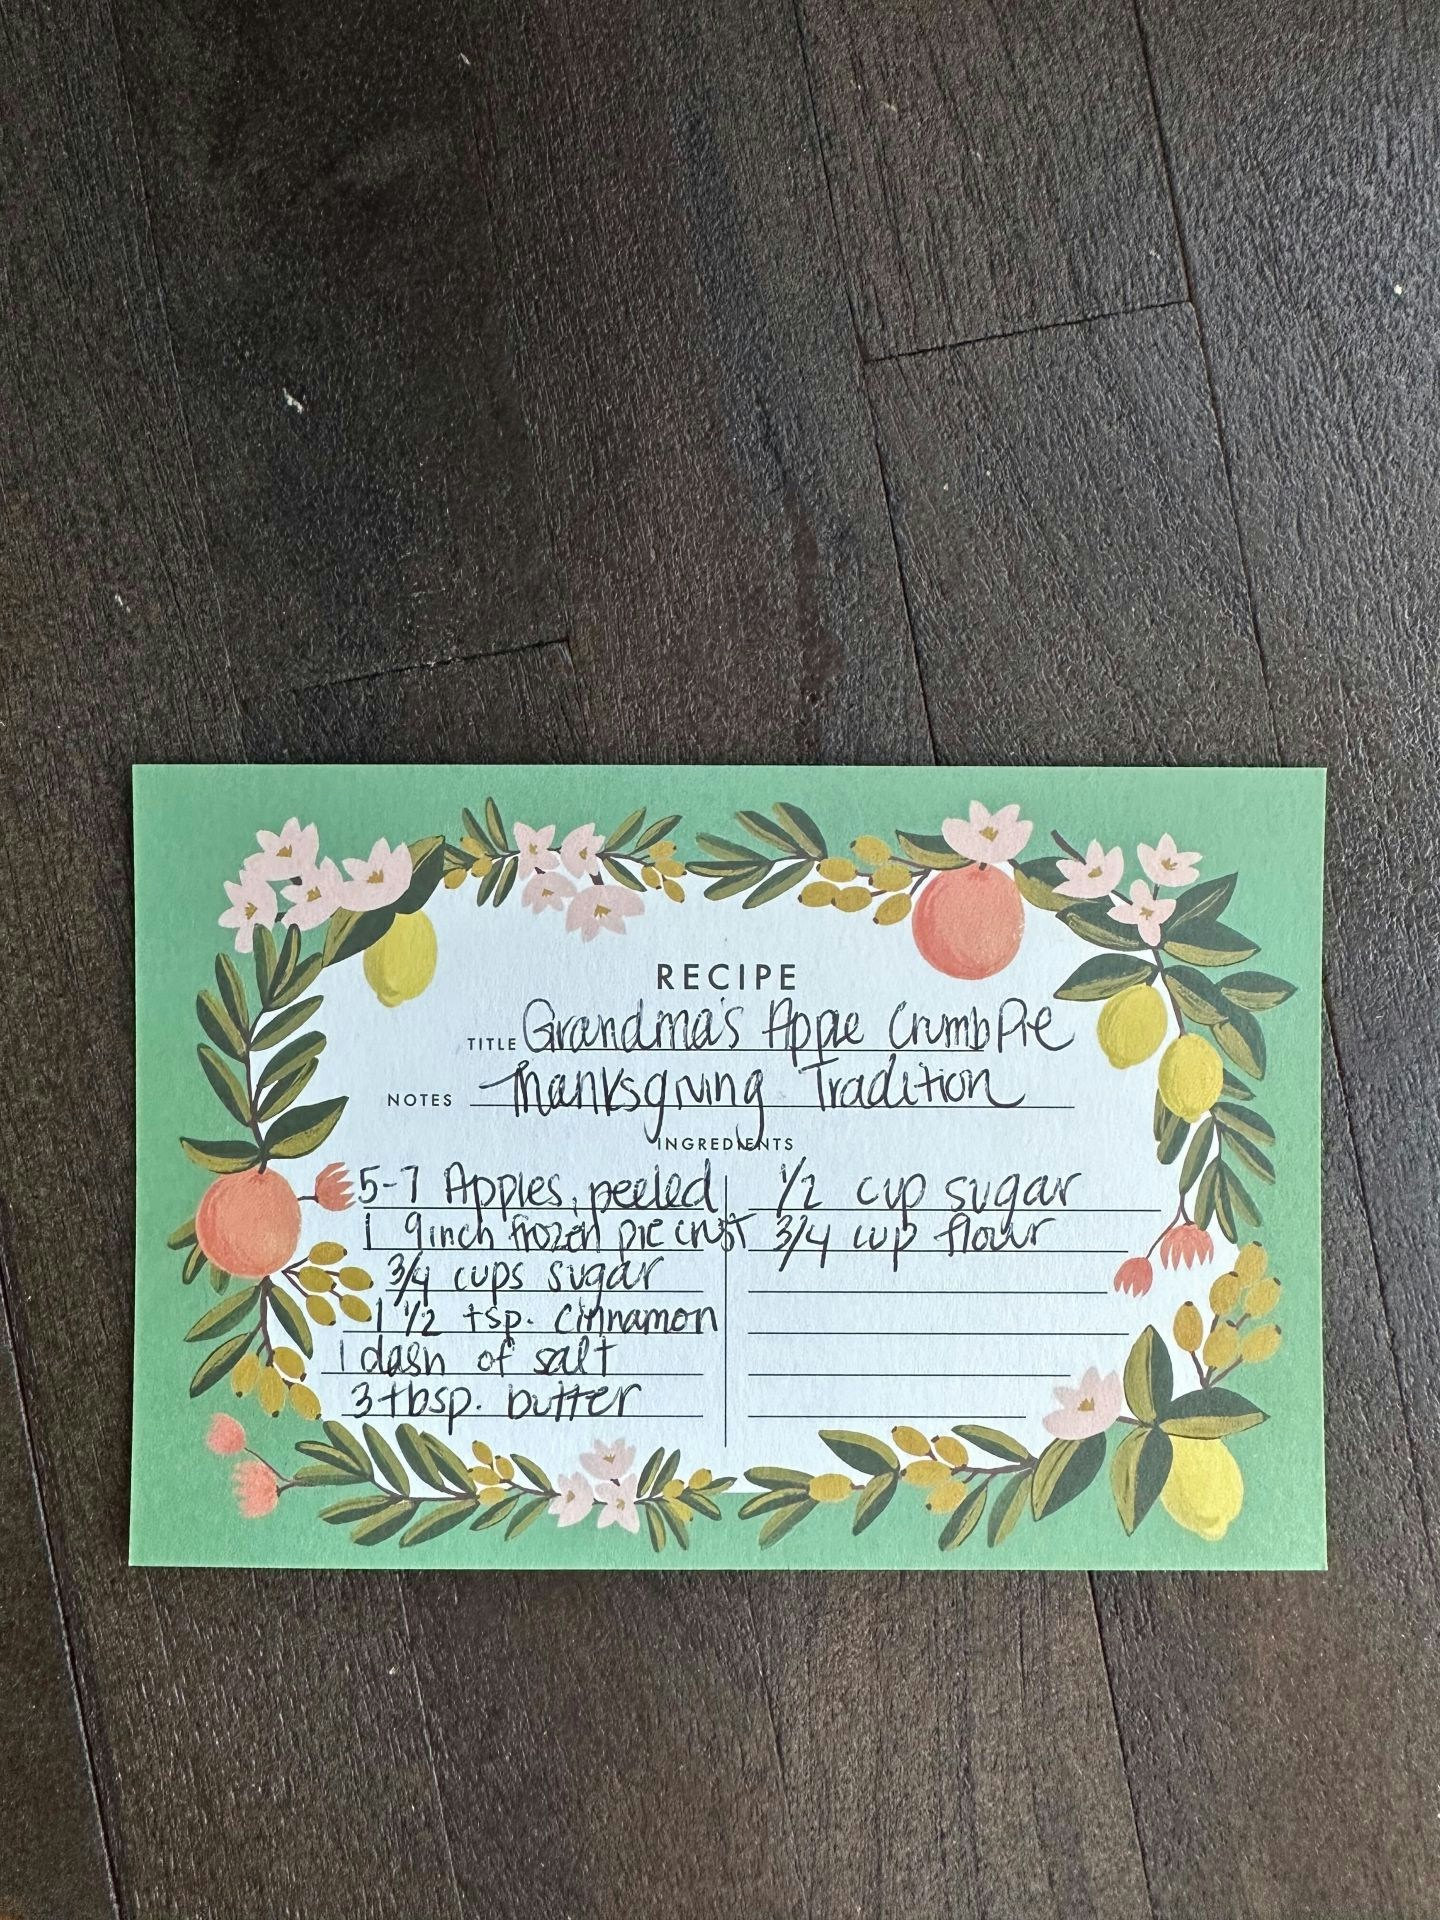 RECIPE
TITLE Grandma's Apple Crumb Pie
NOTES Thanksgiving Tradition
INGREDIENTS
5-7 Apples, peeled
1 9inch frozen pie crust
3/4 cups sugar
1 1/2 tsp. cinnamon
1 dash of salt
3 tbsp. butter
1/2 cup sugar
3/4 cup flour